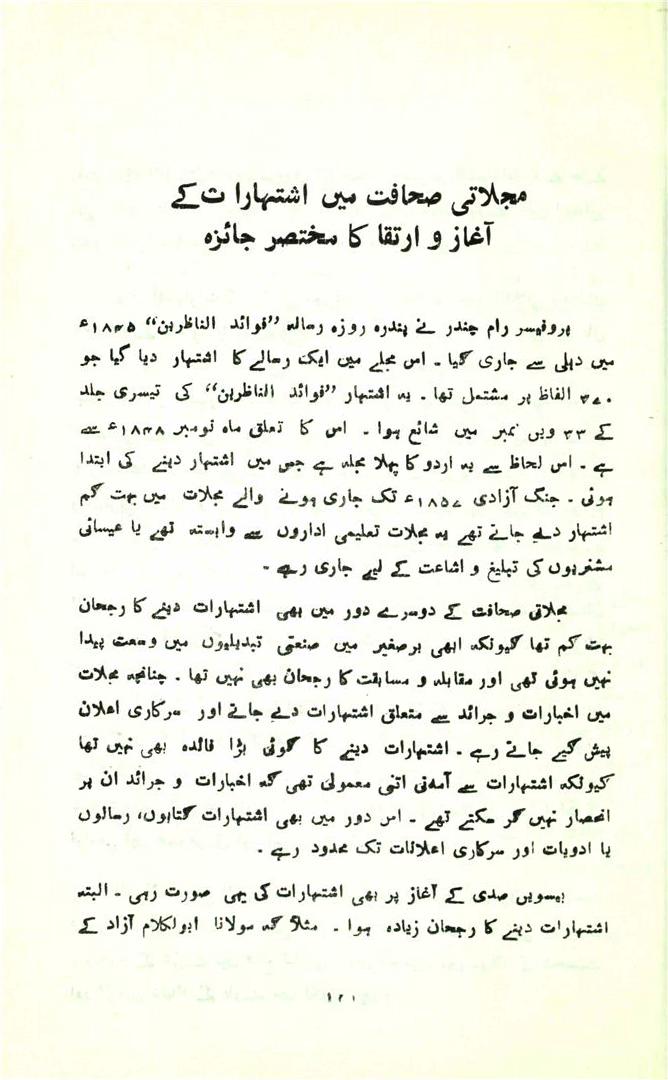 مجلاتی صحافت میں اشتہارات کے
آغاز و ارتقا کا مختصر جائزہ
پروفیسر رام چندر نے پندرہ روزہ رسالہ ”فوائد الناظرین“ ۱۸۴۵ء
میں دہلی سے جاری کیا ۔ اس مجلے میں ایک رسالے کا اشتہار دیا گیا جو
۳۷۰ الفاظ پر مشتمل تھا ۔ یہ اشتہار ”فوائد الناظرین“ کی تیسری جلد
کے ۳۳ ویں نمبر میں شائع ہوا ۔ اس کا تعلق ماہ نومبر ۱۸۴۸ء سے
ہے ۔ اس لحاظ سے یہ اردو کا پہلا مجلہ ہے جس میں اشتہار دینے کی ابتدا
ہوئی ۔ جنگ آزادی ۱۸۵۷ء تک جاری ہونے والے مجلات میں بہت کم
اشتہار دیے جاتے تھے یہ مجلات تعلیمی اداروں سے وابستہ تھے یا عیسائی
مشنریوں کی تبلیغ و اشاعت کے لیے جاری رہے ۔
مجلاتی صحافت کے دوسرے دور میں بھی اشتہارات دینے کا رجحان
بہت کم تھا کیونکہ ابھی برصغیر میں صنعتی تبدیلیوں میں وسعت پیدا
نہیں ہوئی تھی اور مقابلہ و مسابقت کا رجحان بھی نہیں تھا ۔ چنانچہ مجلات
میں اخبارات و جرائد سے متعلق اشتہارات دیے جاتے اور سرکاری اعلان
پیش کیے جاتے رہے ۔ اشتہارات دینے کا کوئی بڑا فائدہ بھی نہیں تھا
کیونکہ اشتہارات سے آمدنی اتنی معمولی تھی کہ اخبارات و جرائد ان پر
انحصار نہیں کر سکتے تھے ۔ اس دور میں بھی اشتہارات کتابوں، رسالوں
یا ادویات اور سرکاری اعلانات تک محدود رہے ۔
بیسویں صدی کے آغاز پر بھی اشتہارات کی یہی صورت رہی ۔ البتہ
اشتہارات دینے کا رجحان زیادہ ہوا ۔ مثلاً کہ مولانا ابوالکلام آزاد کے
۱۲۱